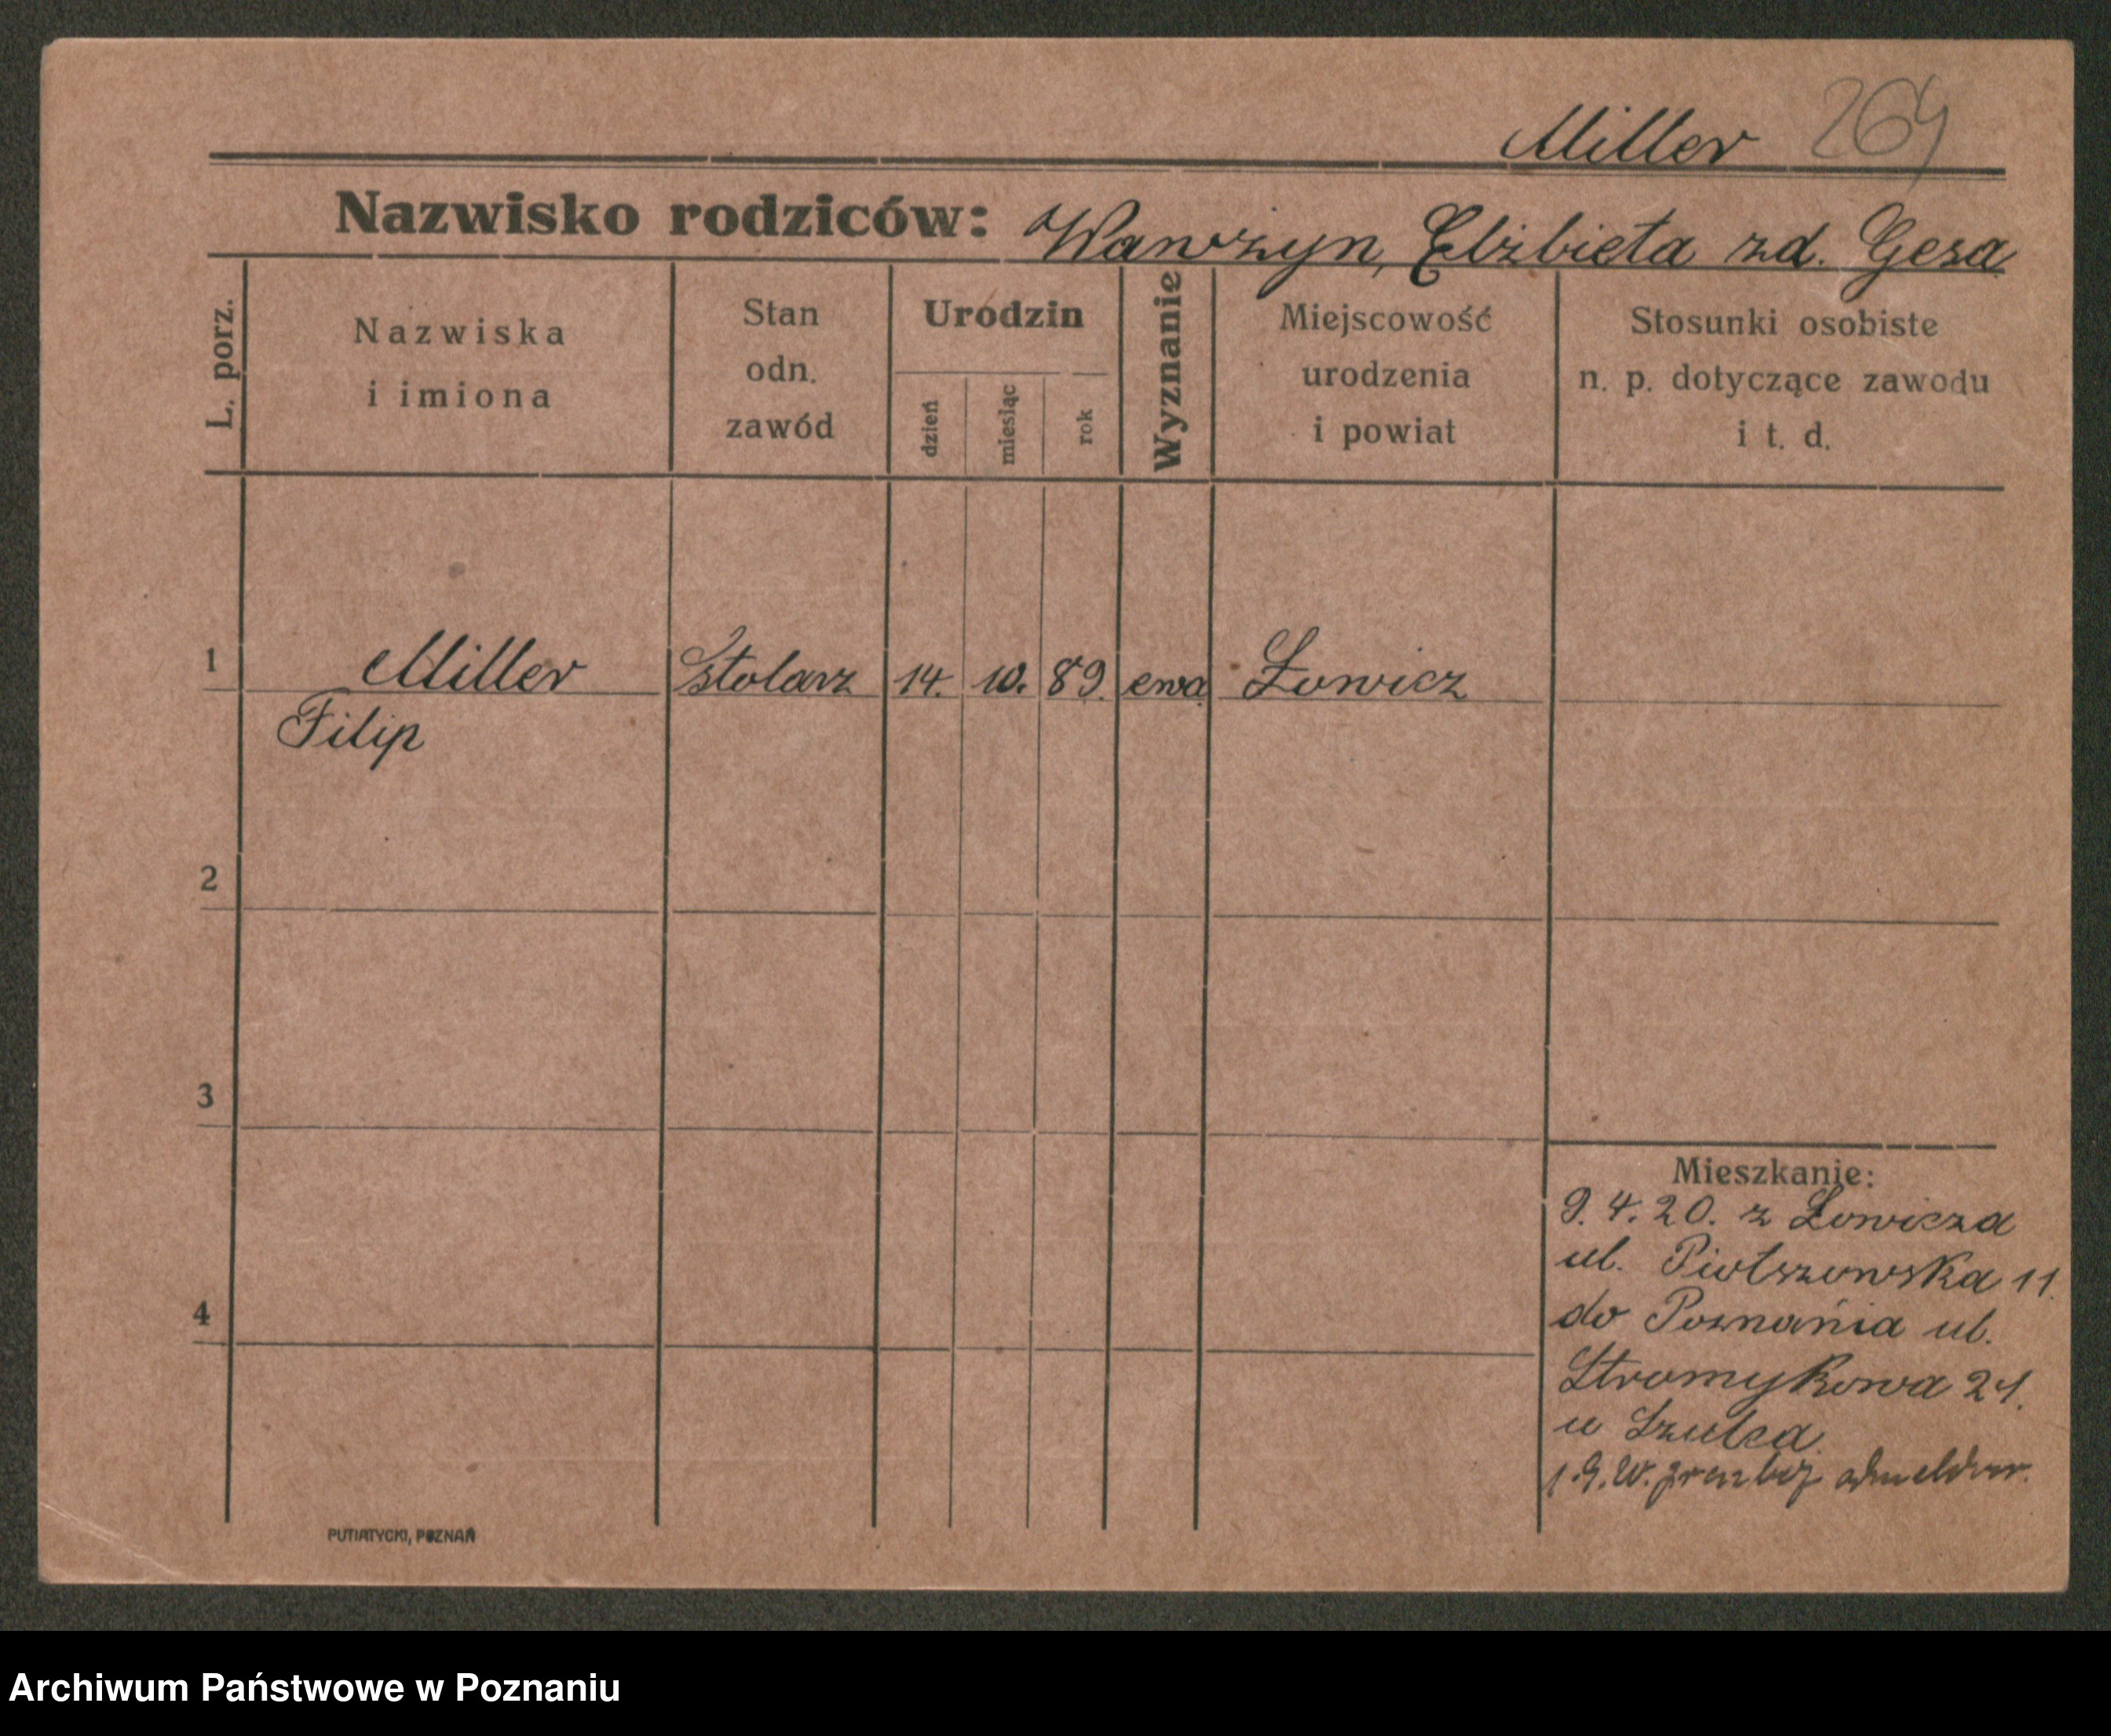 Miller 264
Nazwisko rodziców: Wawrzyn, Elżbieta zd. Gesa
L. porz.
Nazwiska
i imiona
Stan
odn.
zawód
Urodzin
dzień
miesiąc
rok
Wyznanie
Miejscowość
urodzenia
i powiat
Stosunki osobiste
n. p. dotyczące zawodu
i t. d.
1 Miller Stolarz 14. 10. 89. ewa Łowicz
Filip
2
3
4
Mieszkanie:
9. 4. 20. z Łowicza
ul. Piotrzowska 11.
do Poznania ul.
Strumykowa 21.
u Szulca.
PUTIATYCKI, POZNAŃ
Archiwum Państwowe w Poznaniu